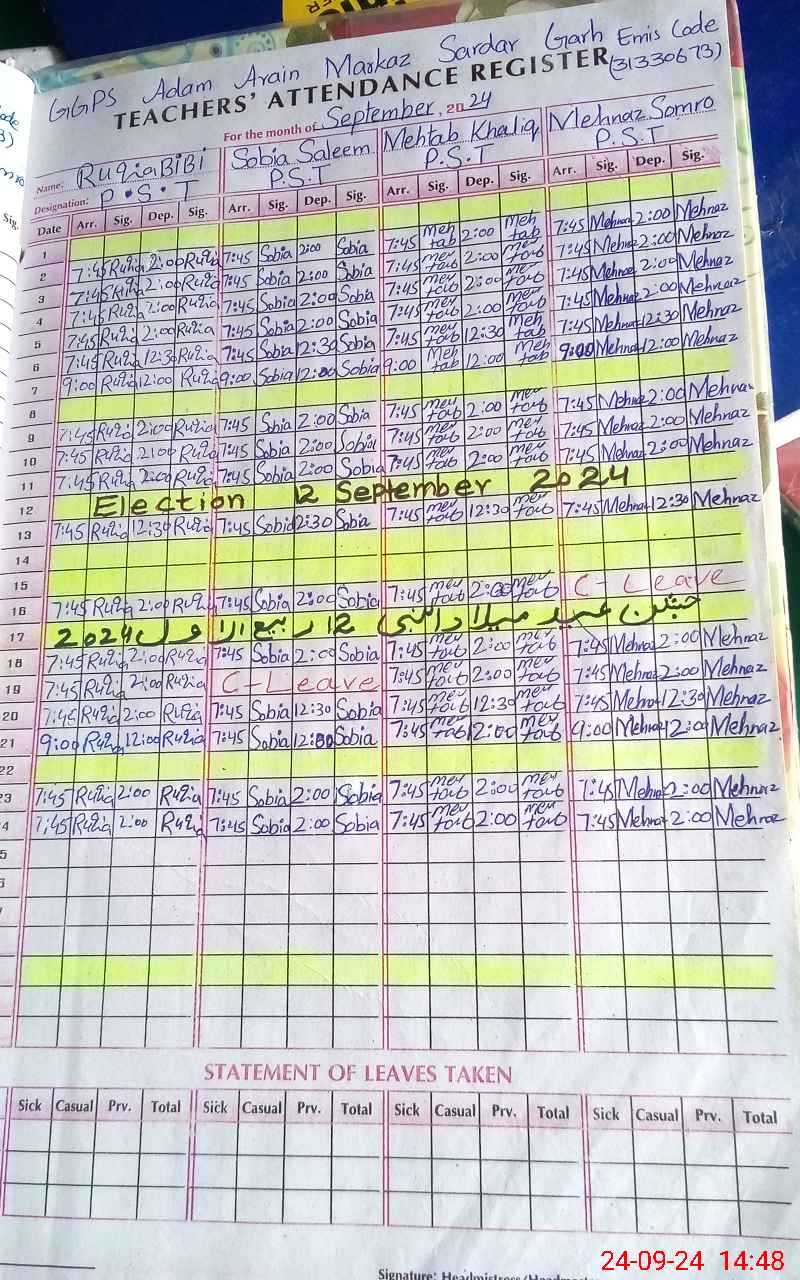 GGPS Adam Arain Markaz Sardar Garh Emis Code
(31330673)
TEACHERS' ATTENDANCE REGISTER
For the month of September, 2024
Name: Ruqia BiBi Sobia Saleem Mehtab Khaliq Mehnaz Somro
Designation: P.S.T P.S.T P.S.T P.S.T
Date Arr. Sig. Dep. Sig. Arr. Sig. Dep. Sig. Arr. Sig. Dep. Sig. Arr. Sig. Dep. Sig.
1
2 7:45 Ruqia 2:00 Ruqia 7:45 Sobia 2:00 Sobia 7:45 Mehtab 2:00 Mehtab 7:45 Mehnaz 2:00 Mehnaz
3 7:45 Ruqia 2:00 Ruqia 7:45 Sobia 2:00 Sobia 7:45 Mehtab 2:00 Mehtab 7:45 Mehnaz 2:00 Mehnaz
4 7:45 Ruqia 2:00 Ruqia 7:45 Sobia 2:00 Sobia 7:45 Mehtab 2:00 Mehtab 7:45 Mehnaz 2:00 Mehnaz
5 7:45 Ruqia 2:00 Ruqia 7:45 Sobia 2:00 Sobia 7:45 Mehtab 2:00 Mehtab 7:45 Mehnaz 2:00 Mehnaz
6 7:45 Ruqia 12:30 Ruqia 7:45 Sobia 12:30 Sobia 7:45 Mehtab 12:30 Mehtab 7:45 Mehnaz 12:30 Mehnaz
7 9:00 Ruqia 12:00 Ruqia 9:00 Sobia 12:00 Sobia 9:00 Mehtab 12:00 Mehtab 9:00 Mehnaz 12:00 Mehnaz
8
9 7:45 Ruqia 2:00 Ruqia 7:45 Sobia 2:00 Sobia 7:45 Mehtab 2:00 Mehtab 7:45 Mehnaz 2:00 Mehnaz
10 7:45 Ruqia 2:00 Ruqia 7:45 Sobia 2:00 Sobia 7:45 Mehtab 2:00 Mehtab 7:45 Mehnaz 2:00 Mehnaz
11 7:45 Ruqia 2:00 Ruqia 7:45 Sobia 2:00 Sobia 7:45 Mehtab 2:00 Mehtab 7:45 Mehnaz 2:00 Mehnaz
12 Election 12 September 2024
13 7:45 Ruqia 12:30 Ruqia 7:45 Sobia 12:30 Sobia 7:45 Mehtab 12:30 Mehtab 7:45 Mehnaz 12:30 Mehnaz
14
15
16 7:45 Ruqia 2:00 Ruqia 7:45 Sobia 2:00 Sobia 7:45 Mehtab 2:00 Mehtab C-Leave
17 جشن عید میلاد النبی 12 ربیع الاول 2024
18 7:45 Ruqia 2:00 Ruqia 7:45 Sobia 2:00 Sobia 7:45 Mehtab 2:00 Mehtab 7:45 Mehnaz 2:00 Mehnaz
19 7:45 Ruqia 2:00 Ruqia C-Leave 7:45 Mehtab 2:00 Mehtab 7:45 Mehnaz 2:00 Mehnaz
20 7:45 Ruqia 2:00 Ruqia 7:45 Sobia 12:30 Sobia 7:45 Mehtab 12:30 Mehtab 7:45 Mehnaz 12:30 Mehnaz
21 9:00 Ruqia 12:00 Ruqia 7:45 Sobia 12:00 Sobia 7:45 Mehtab 12:00 Mehtab 9:00 Mehnaz 12:00 Mehnaz
22
23 7:45 Ruqia 2:00 Ruqia 7:45 Sobia 2:00 Sobia 7:45 Mehtab 2:00 Mehtab 7:45 Mehnaz 2:00 Mehnaz
4 7:45 Ruqia 2:00 Ruqia 7:45 Sobia 2:00 Sobia 7:45 Mehtab 2:00 Mehtab 7:45 Mehnaz 2:00 Mehnaz
5
6
STATEMENT OF LEAVES TAKEN
Sick Casual Prv. Total Sick Casual Prv. Total Sick Casual Prv. Total Sick Casual Prv. Total
Signature: Headmistress
24-09-24 14:48